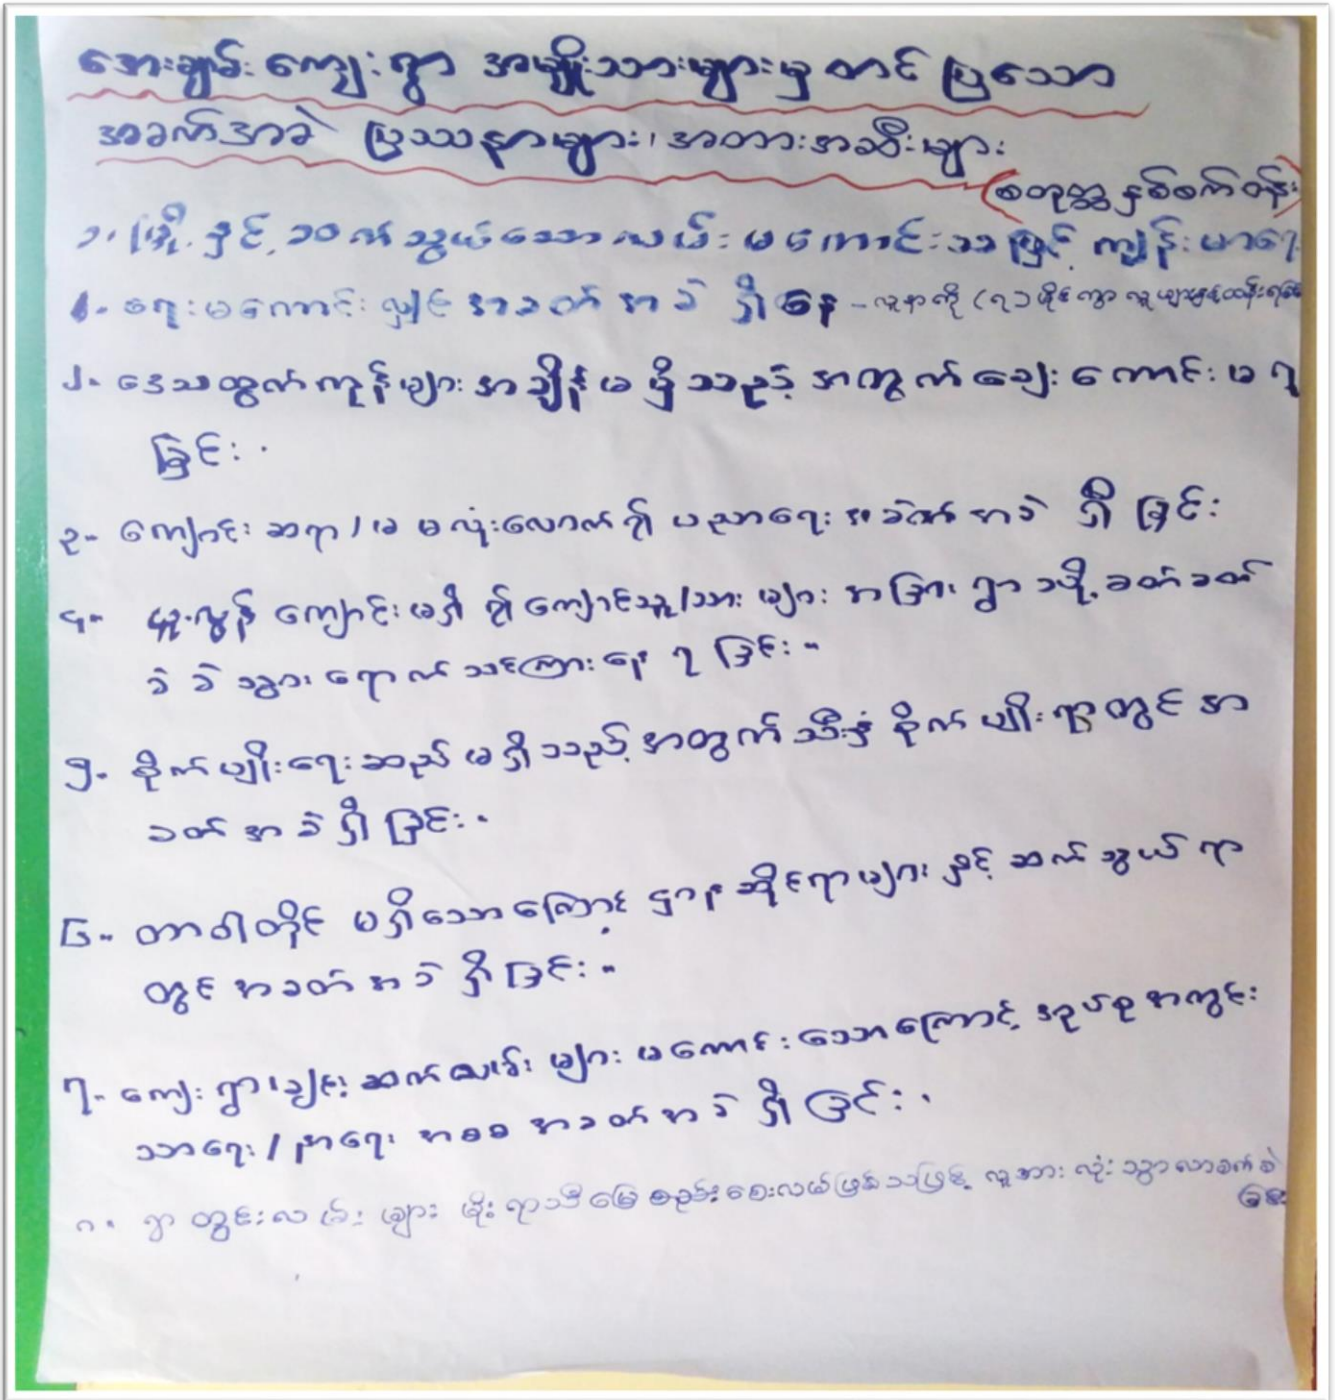 အေးချမ်းကျေးရွာ အမျိုးသားများမှ တင်ပြသော
အခက်အခဲ ပြဿနာများ၊ အတားအဆီးများ
နှစ်စက်တန်း
၁. မြို့နှင့် ဆက်သွယ်သောလမ်းမကောင်းသဖြင့် ကျန်းမာရေး
ရေးမကောင်းလျှင် အခတ်အခဲ ရှိနေ - လူနာကို (၇)မိုင်ကွာ
၂. ဒေသထွက်ကုန်များ အချိန်မရှိသည့် အတွက် ဈေးကောင်းမရ
ခြင်း.
၃. ကျောင်းဆရာ/မ မလုံလောက်၍ ပညာရေး အခတ်အခဲ ရှိခြင်း
၄. မူလွန်ကျောင်းမရှိ၍ ကျောင်းသူ/သား များ အခြားရွာသို့ ခတ်ခတ်
ခဲခဲ သွားရောက် သင်ကြားနေရခြင်း။
၅. စိုက်ပျိုးရေးဆည်မရှိသည့်အတွက် သီးနှံ စိုက်ပျိုးရာတွင် အ
ခတ်အခဲရှိခြင်း.
၆. တာဝါတိုင် မရှိသောကြောင့် ဌာနဆိုင်ရာများ နှင့် ဆက်သွယ်ရာ
တွင် အခတ်အခဲ ရှိခြင်း။
၇. ကျေးရွာချင်း ဆက်လမ်းများ မကောင်းသောကြောင့် အုပ်စုအတွင်း
သာရေး/နာရေး အစစ အခတ်အခဲ ရှိခြင်း.
၈. ရွာတွင်းလမ်းများ မိုးရာသီ မြေစေးလမ်းဖြစ်သဖြင့် လူအားလုံး သွားလာခက်ခဲ
ခြင်း